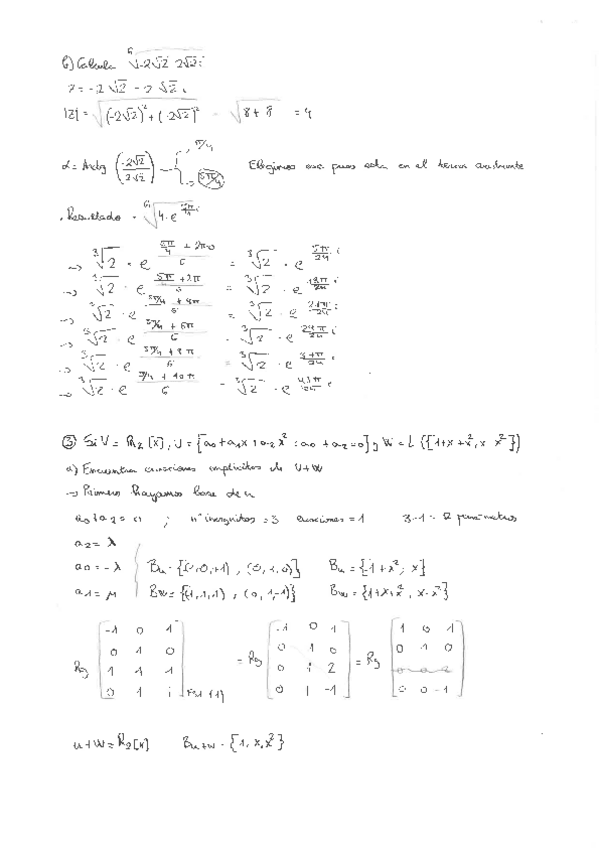 b) Calcula ⁶√-2√2 2√2 i
z = -2√2 - 2√2 i
|z| = √(-2√2)² + (-2√2)² = √8+8 = 4
α = Arctg (-2√2 / 2√2) → π/4
→ 5π/4 Elegimos ese pues esta en el tercer cuadrante
. Resultado = ⁶√4·e^(5π/4 i)
→ ³√2 · e^((5π/4 + 2π·0)/6) = ³√2 · e^(5π/24 i)
→ ³√2 · e^((5π/4 + 2π)/6) = ³√2 · e^(13π/24 i)
→ ³√2 · e^((5π/4 + 4π)/6) = ³√2 · e^(21π/24 i)
→ ³√2 · e^((5π/4 + 6π)/6) = ³√2 · e^(29π/24 i)
→ ³√2 · e^((5π/4 + 8π)/6) = ³√2 · e^(37π/24 i)
→ ³√2 · e^((5π/4 + 10π)/6) = ³√2 · e^(45π/24 i)
③ Si V = R₂[x], U = {a₀+a₁x+a₂x² : a₀+a₂=0} y W = L({1+x+x², x x²})
a) Encuentra ecuaciones implicitas de U+W
→ Primero hayamos base de u
a₀+a₂=0 ; nº incognitas=3 ecuaciones=1 3-1=2 parámetros
a₂ = λ
a₀ = -λ Bu = {(-1,0,+1), (0,1,0)} Bu = {-1+x², x}
a₁ = μ Bw = {(1,1,1), (0,1,-1)} Bw = {1+x+x², x-x²}
Rg [-1 0 1; 0 1 0; 1 1 1; 0 1 1] = Rg [-1 0 1; 0 1 0; 0 1 2; 0 1 -1] = Rg [1 0 1; 0 1 0; 0 0 2; 0 0 -1]
u+W = R₂[x] Bu+w = {1, x, x²}